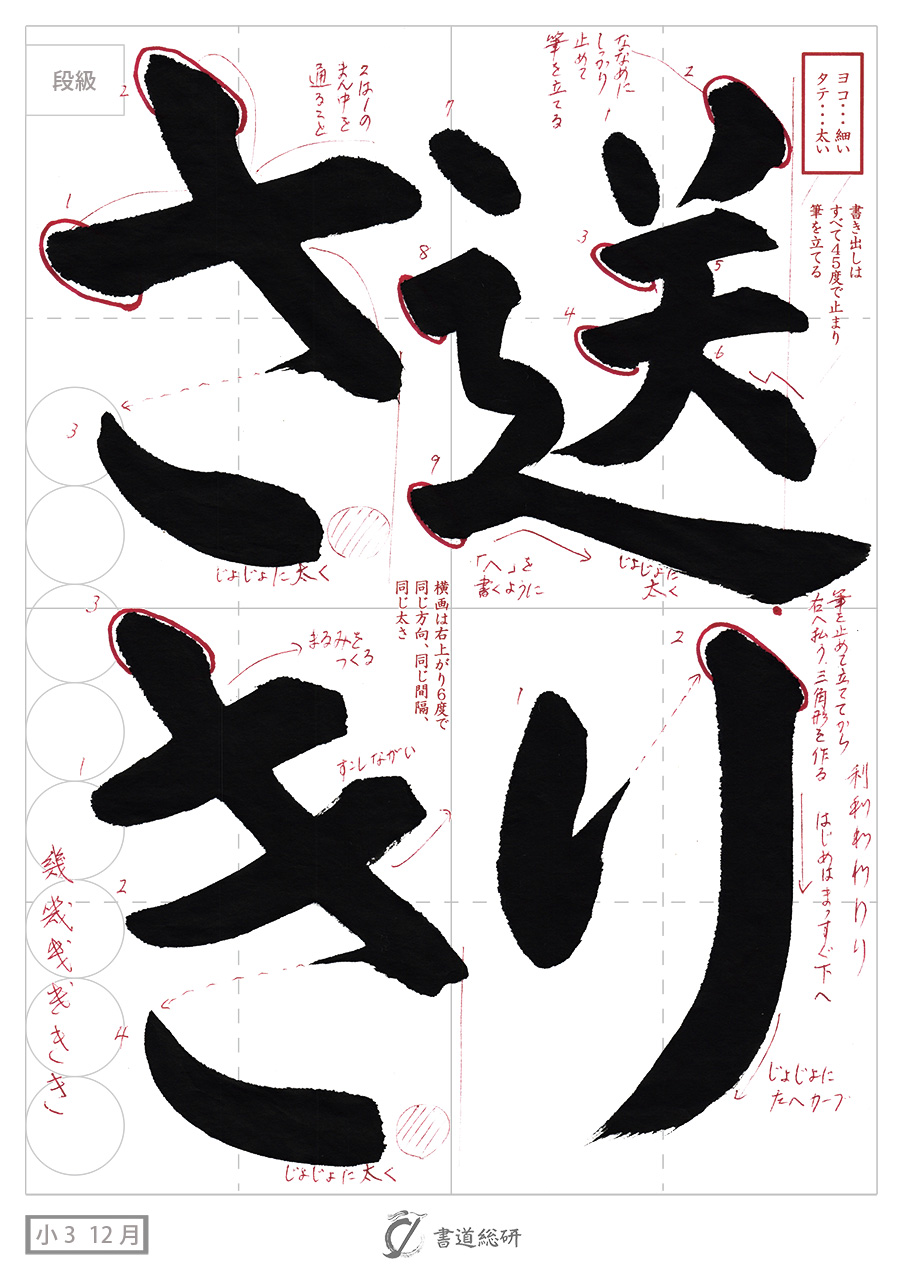 送り
さき
段級
ヨコ・・・細い
タテ・・・太い
書き出しは
すべて45度で止まり
筆を立てる
ななめに
しっかり
止めて
筆を立てる
1
2
3
4
5
6
7
8
9
「へ」を
書くように
じょじょに
太く
筆を止めて立ててから
右へ払う、三角形を作る
1
2
はじめはまっすぐ下へ
利
り
じょじょに
左へカーブ
2は1の
まん中を
通ること
1
2
3
じょじょに太く
横画は右上がり6度で
同じ方向、同じ間隔、
同じ太さ
まるみを
つくる
すこしながい
1
2
3
4
幾
き
き
じょじょに太く
小3 12月
書道総研